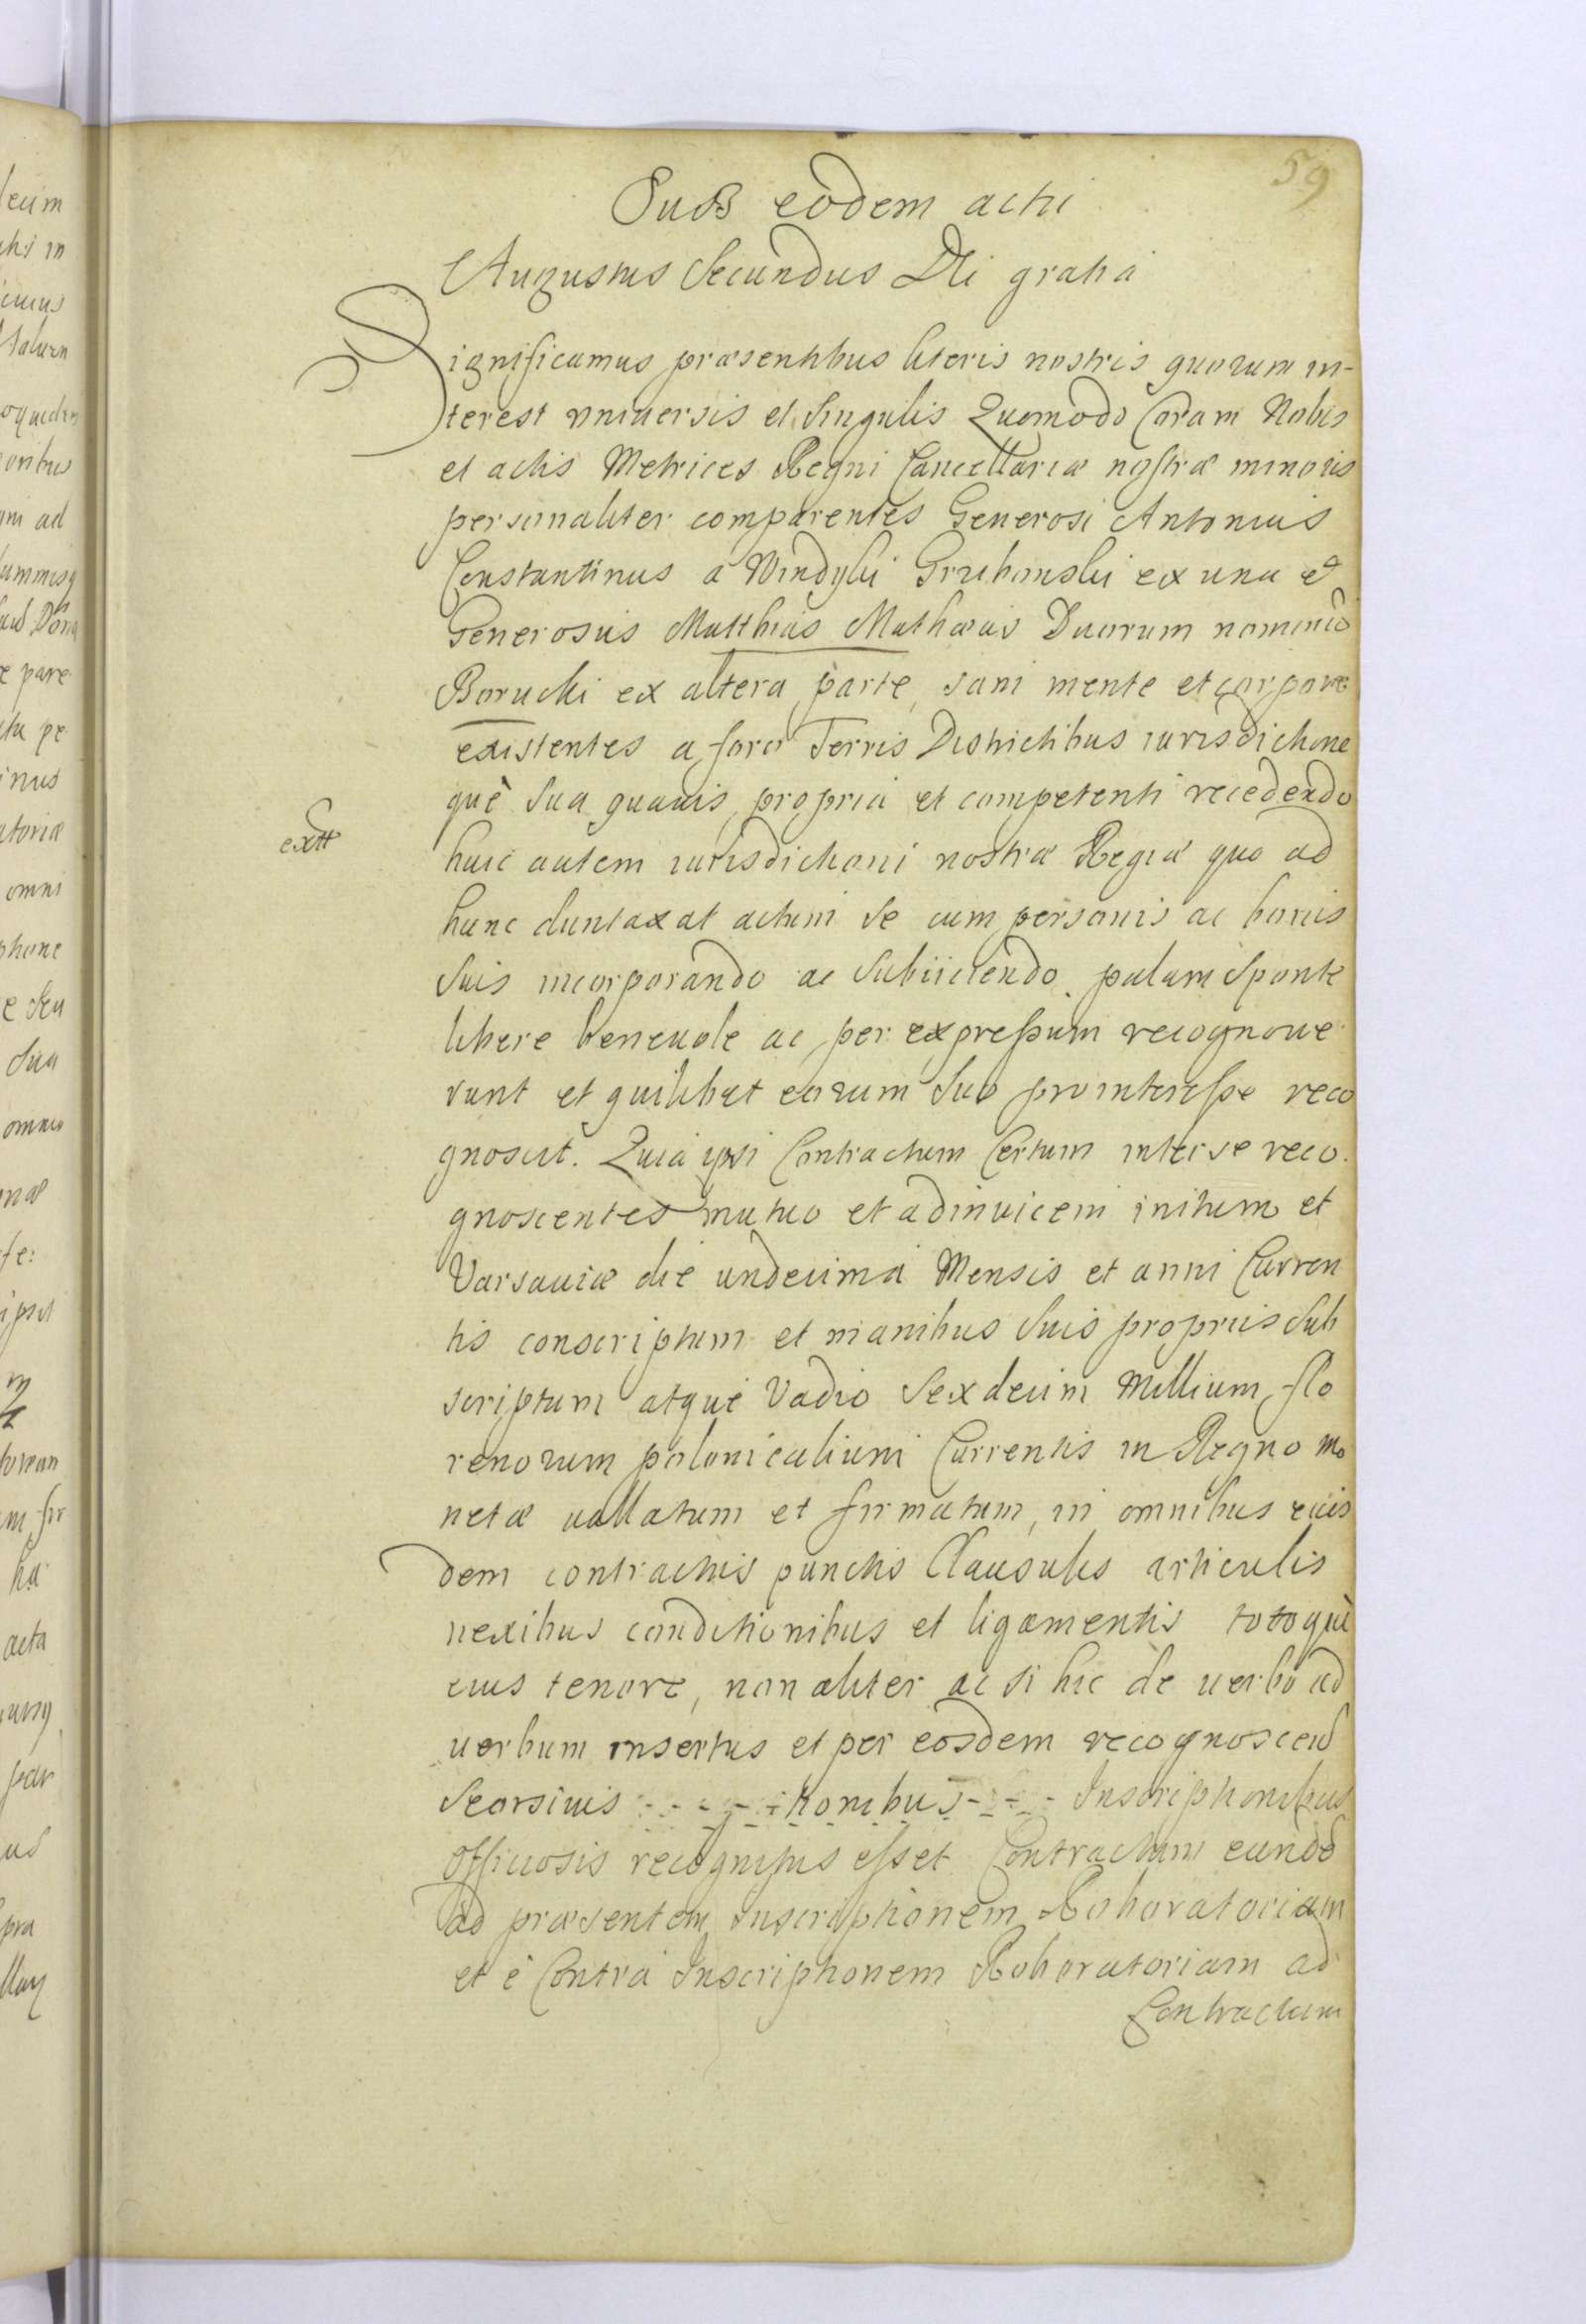 59
Sub eodem actu
Augustus Secundus Dei gratia
Significamus præsentibus literis nostris quorum in-
terest universis et singulis Quomodo Coram Nobis
et actis Metrices Regni Cancellariæ nostræ minoris
personaliter comparentes Generosi Antonius
Constantinus a Windyki Grzibowski ex una et
Generosus Matthias Mathæus Duorum nominũ
Borucki ex altera parte, sani mente et corpore
existentes a foro Terris Districtibus iurisdictione
què sua quavis propria et competenti recedendo
extt
huic autem iurisdictioni nostræ Regiæ quo ad
hunc duntaxat actum se cum personis ac bonis
suis incorporando ac subiiciendo palam sponte
libere benevole ac per expressum recognove
runt et quilibet eorum suo prointeresse reco
gnoscit. Quia ipsi Contractum Certum inter se reco.
gnoscentes mutuo et adinvicem initum et
Varsaviæ die undecima Mensis et anni Curren
tis conscriptum et manibus suis propriis sub
scriptum atquè Vadio Sexdecim Millium flo
renorum polonicalium Currentis in Regno mo
netæ vallatum et firmatum, in omnibus eius
dem contractus punctis Clausulis articulis
nexibus conditionibus et ligamentis totoquè
eius tenore, non aliter ac si hic de verbo ad
verbum insertus et per eosdem recognoscen
seorsivis - - - - - tionibus - - - Inscriptionibus
officiosis recognitus esset Contractum eundẽ
ad præsentem Inscriptionem Roboratoriam
et è Contra Inscriptionem Roboratoriam ad
Contractum